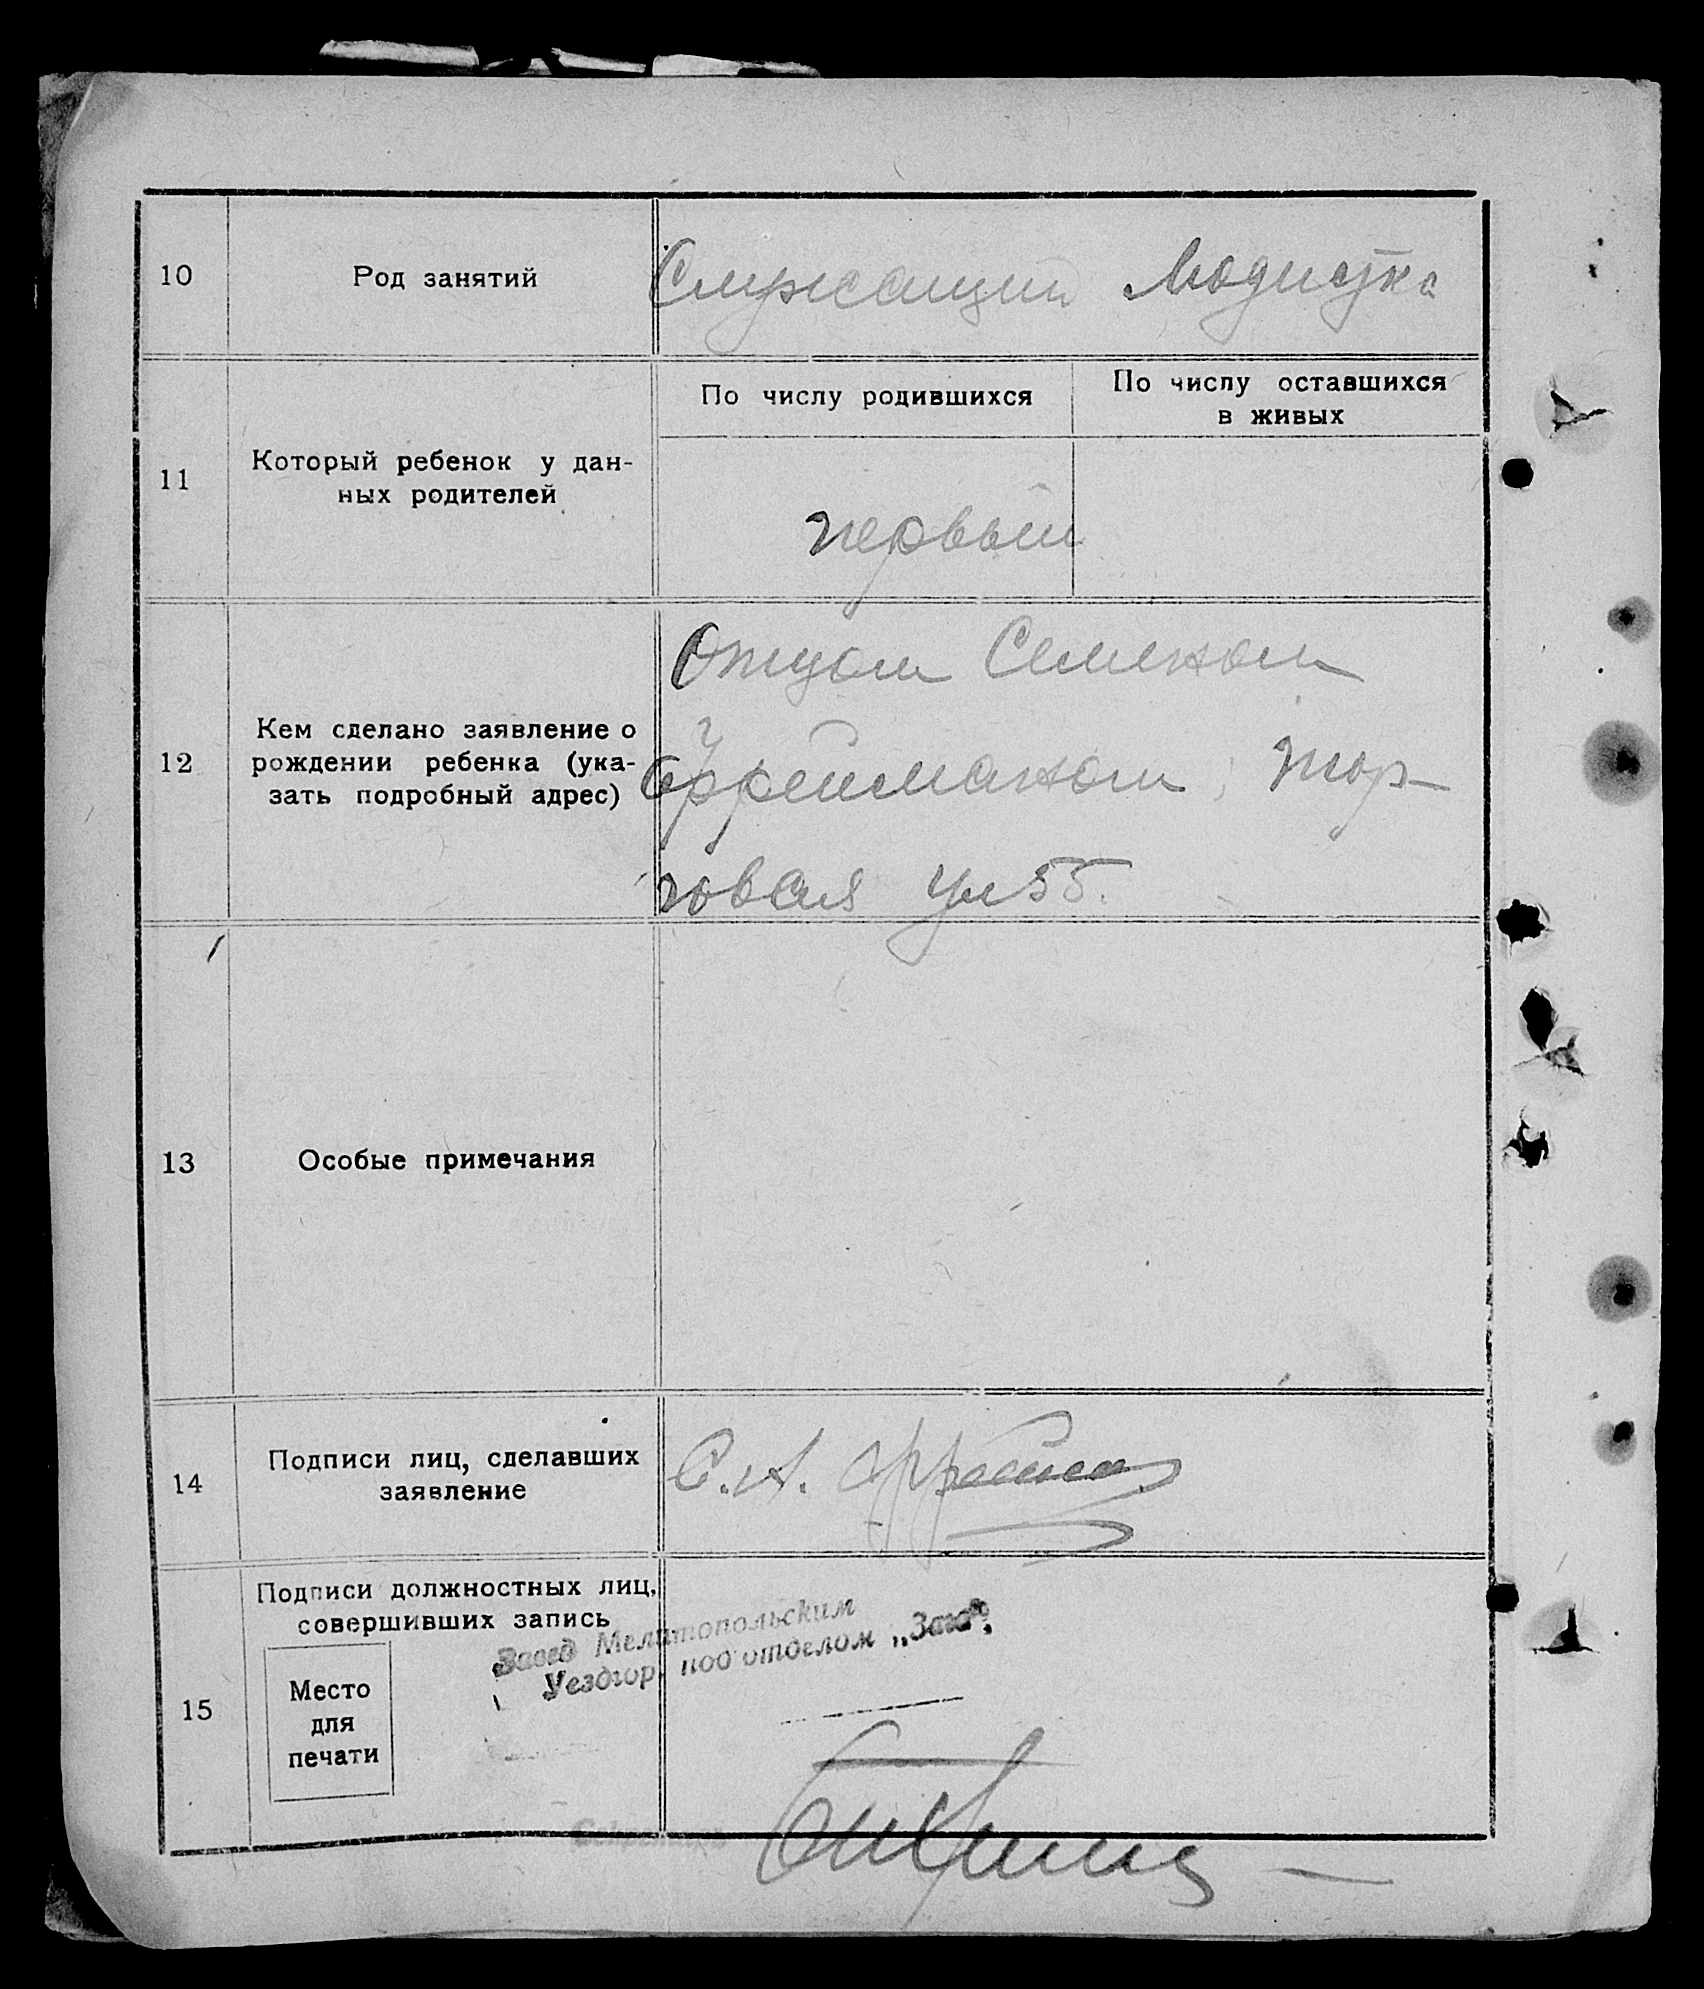 10 Род занятий Служащий Модистка
11 Который ребенок у дан-
ных родителей
По числу родившихся
По числу оставшихся
в живых
первый
12 Кем сделано заявление о
рождении ребенка (ука-
зать подробный адрес)
Отцом Семеном
Фрейманом, Тор-
говая ул 55.
13 Особые примечания
14 Подписи лиц, сделавших
заявление
С. А.
15 Подписи должностных лиц,
совершивших запись
Место
для
печати
Завед Мелитопольским
Уездгор. под отделом „Загс".